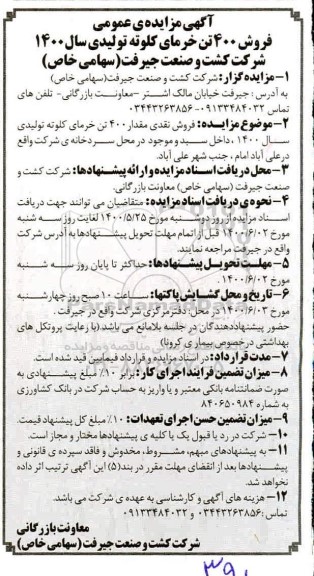 آگهی مزایده ی عمومی
فروش ۴۰۰ تن خرمای کلوته تولیدی سال ۱۴۰۰
شرکت کشت و صنعت جیرفت (سهامی خاص)
۱- مزایده گزار: شرکت کشت و صنعت جیرفت (سهامی خاص)
به آدرس: جیرفت خیابان مالک اشتر – معاونت بازرگانی- تلفن های
تماس ۰۹۱۳۳۴۸۴۰۳۲ - ۰۳۴۴۳۲۶۳۸۵۶
۲- موضوع مزایده: فروش نقدی مقدار ۴۰۰ تن خرمای کلوته تولیدی
سال ۱۴۰۰ ، داخل سبد و موجود در محل سردخانه ی شرکت واقع
در علی آباد امام ، جنب شهر علی آباد.
۳- محل دریافت اسناد مزایده و ارائه پیشنهادها: شرکت کشت و
صنعت جیرفت (سهامی خاص) معاونت بازرگانی.
۴- نحوه ی دریافت اسناد مزایده: متقاضیان می توانند جهت دریافت
اسناد مزایده از روز دوشنبه مورخ ۱۴۰۰/۵/۲۵ لغایت روز سه شنبه
مورخ ۱۴۰۰/۶/۰۲ قبل از اتمام مهلت تحویل پیشنهادها به آدرس شرکت
واقع در جیرفت مراجعه نمایند.
۵- مهلت تحویل پیشنهادها: حداکثر تا پایان روز سه شنبه
مورخ ۱۴۰۰/۶/۰۲ .
۶- تاریخ و محل گشایش پاکتها: ساعت ۱۰ صبح روز چهارشنبه
مورخ ۱۴۰۰/۶/۰۳ در محل: دفتر مرکزی شرکت واقع در جیرفت .
حضور پیشنهاددهندگان در جلسه بلامانع می باشد (با رعایت پروتکل های
بهداشتی در خصوص بیماری کرونا)
۷- مدت قرارداد: در اسناد مزایده و قرارداد فیمابین قید شده است.
۸- میزان تضمین فرایند اجرای کار: برابر ۱۰٪ مبلغ پیشنهادی به
صورت ضمانتنامه بانکی معتبر و یا واریز به حساب شرکت در بانک کشاورزی
به شماره ۸۴۰۶۵۰۹۸۴
۹- میزان تضمین حسن اجرای تعهدات: ۱۰٪ مبلغ کل پیشنهاد قیمت.
۱۰- شرکت در رد یا قبول یک یا کلیه ی پیشنهادها مختار و مجاز است.
۱۱- به پیشنهادهای مبهم، مشروط، مخدوش و فاقد سپرده ی قانونی و
پیشنهادها بعد از انقضای مهلت مقرر در بند (۵) این آگهی ترتیب اثر داده
نخواهد شد.
۱۲- هزینه های آگهی و کارشناسی به عهده ی شرکت می باشد.
تماس: ۰۳۴۴۳۲۶۳۸۵۶ و ۰۹۱۳۳۴۸۴۰۳۲
معاونت بازرگانی
شرکت کشت و صنعت جیرفت (سهامی خاص)